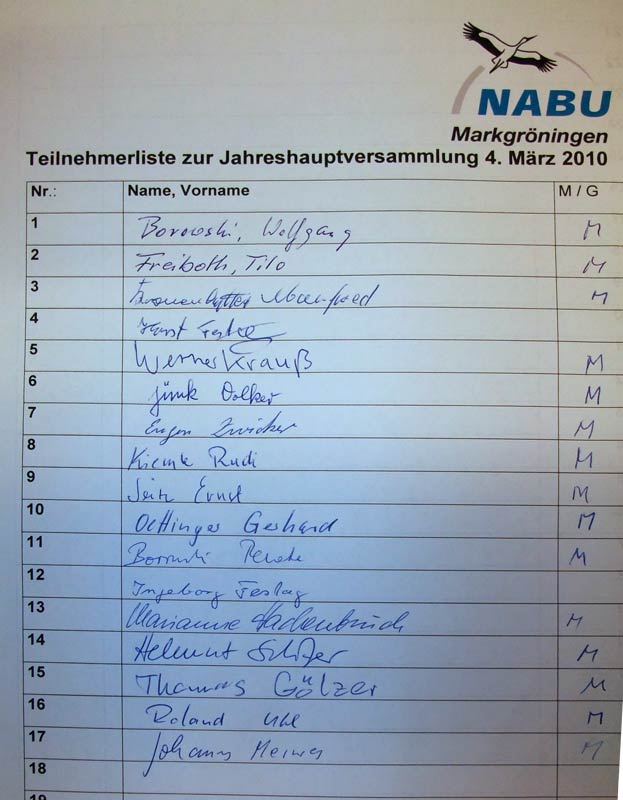 NABU
Markgröningen
Teilnehmerliste zur Jahreshauptversammlung 4. März 2010
Nr.: Name, Vorname M / G
1 Borowski, Wolfgang M
2 Freiboth, Tilo M
3 Manfred M
4 Horst
5 Werner Krauß M
6 Volker M
7 Eugen Zwicker M
8 Rudi M
9 Seitz Ernst M
10 Oettinger Gerhard M
11 Borowski Renate M
12 Ingeborg Festag
13 Marianne Hackenbruch M
14 Helmut M
15 Thomas Gölzer M
16 Roland Uhl M
17 Johann M
18
19